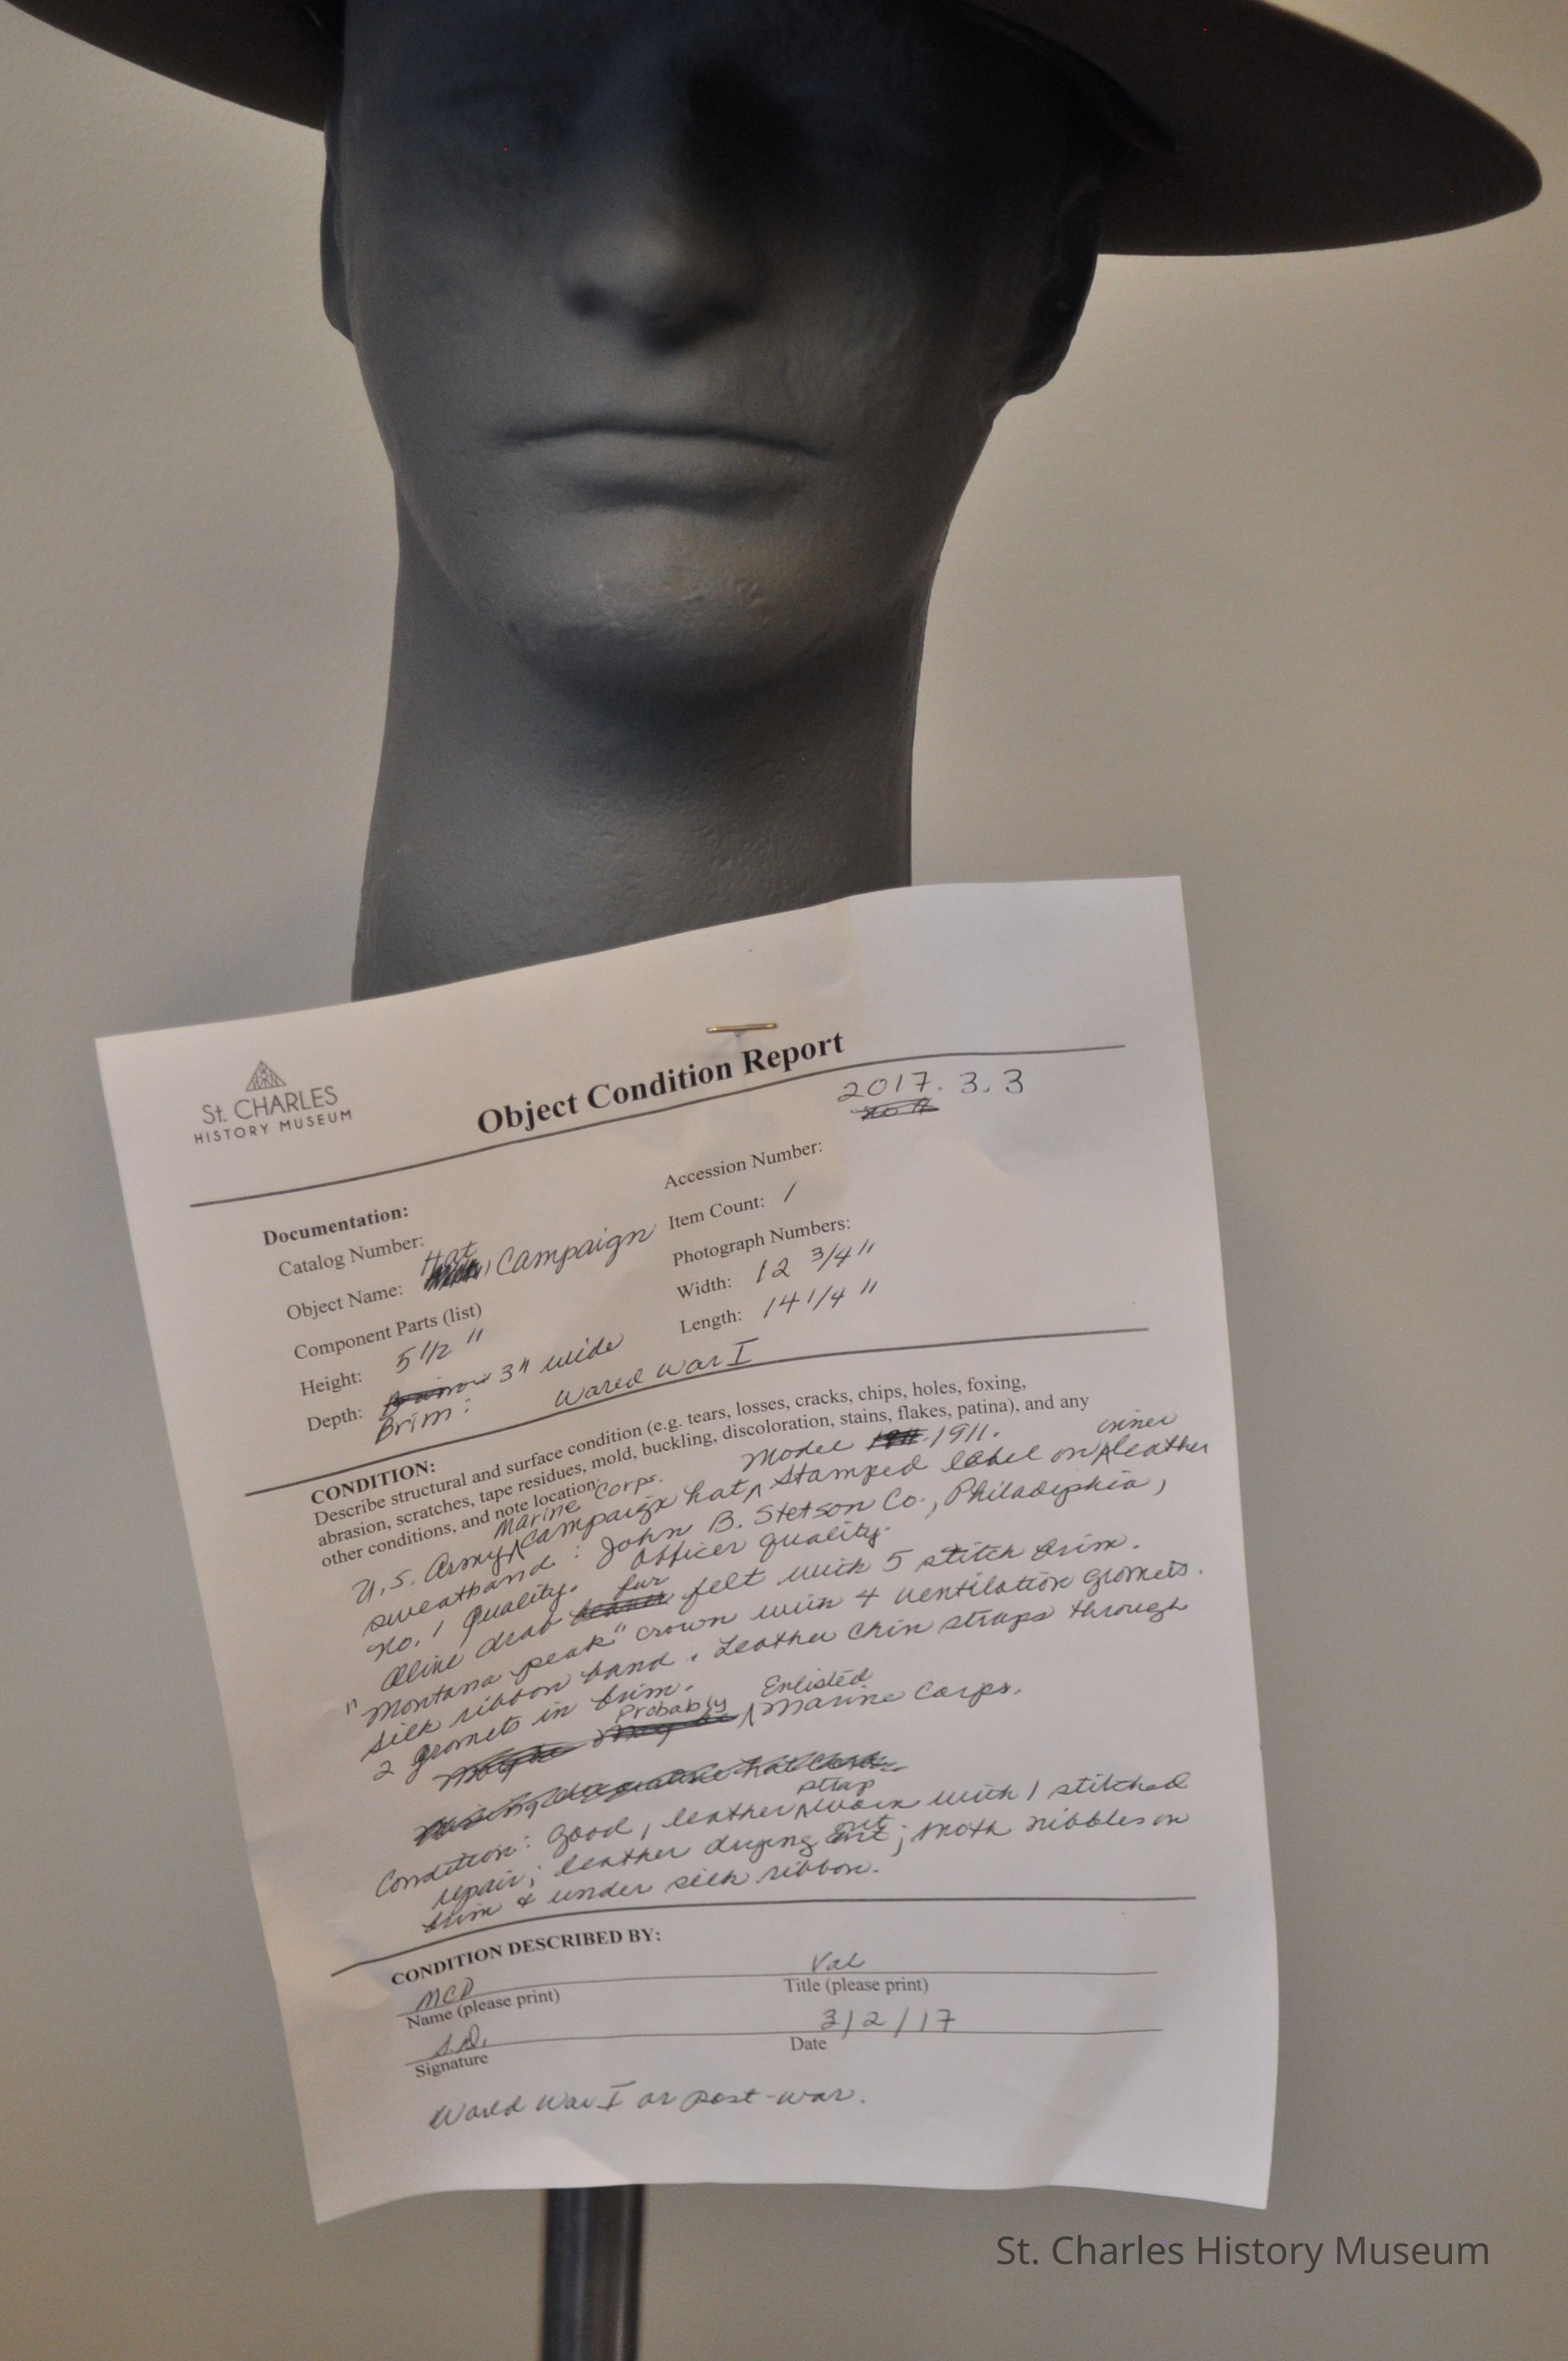 St. CHARLES
HISTORY MUSEUM
Object Condition Report
2017. 3. 3
Documentation:
Accession Number:
Catalog Number:
Item Count: 1
Object Name: Hat, Campaign
Photograph Numbers:
Component Parts (list)
Width: 12 3/4"
Height: 5 1/2"
Length: 14 1/4"
Depth: 3" wide
Brim:
World War I
CONDITION:
Describe structural and surface condition (e.g. tears, losses, cracks, chips, holes, foxing,
abrasion, scratches, tape residues, mold, buckling, discoloration, stains, flakes, patina), and any
other conditions, and note location:
Marine Corps. Model 1911. inner
U.S. Army Campaign hat, Stamped label on leather
sweatband: John B. Stetson Co., Philadelphia,
No. 1 Quality. Officer quality.
Olive drab fur felt with 5 stitch brim.
"Montana peak" crown with 4 ventilation gromets.
silk ribbon band. Leather chin straps through
2 gromets in brim.
Probably Enlisted Marine Corps.
Condition: Good, leather strap worn with 1 stitched
repair; leather drying out; moth nibbles on
brim & under silk ribbon.
CONDITION DESCRIBED BY:
MCD
Vol
Name (please print)
Title (please print)
S.D.
3/2/17
Signature
Date
World War I or post-war.
St. Charles History Museum